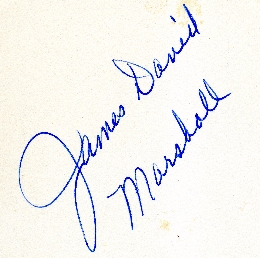 James David
Marshall